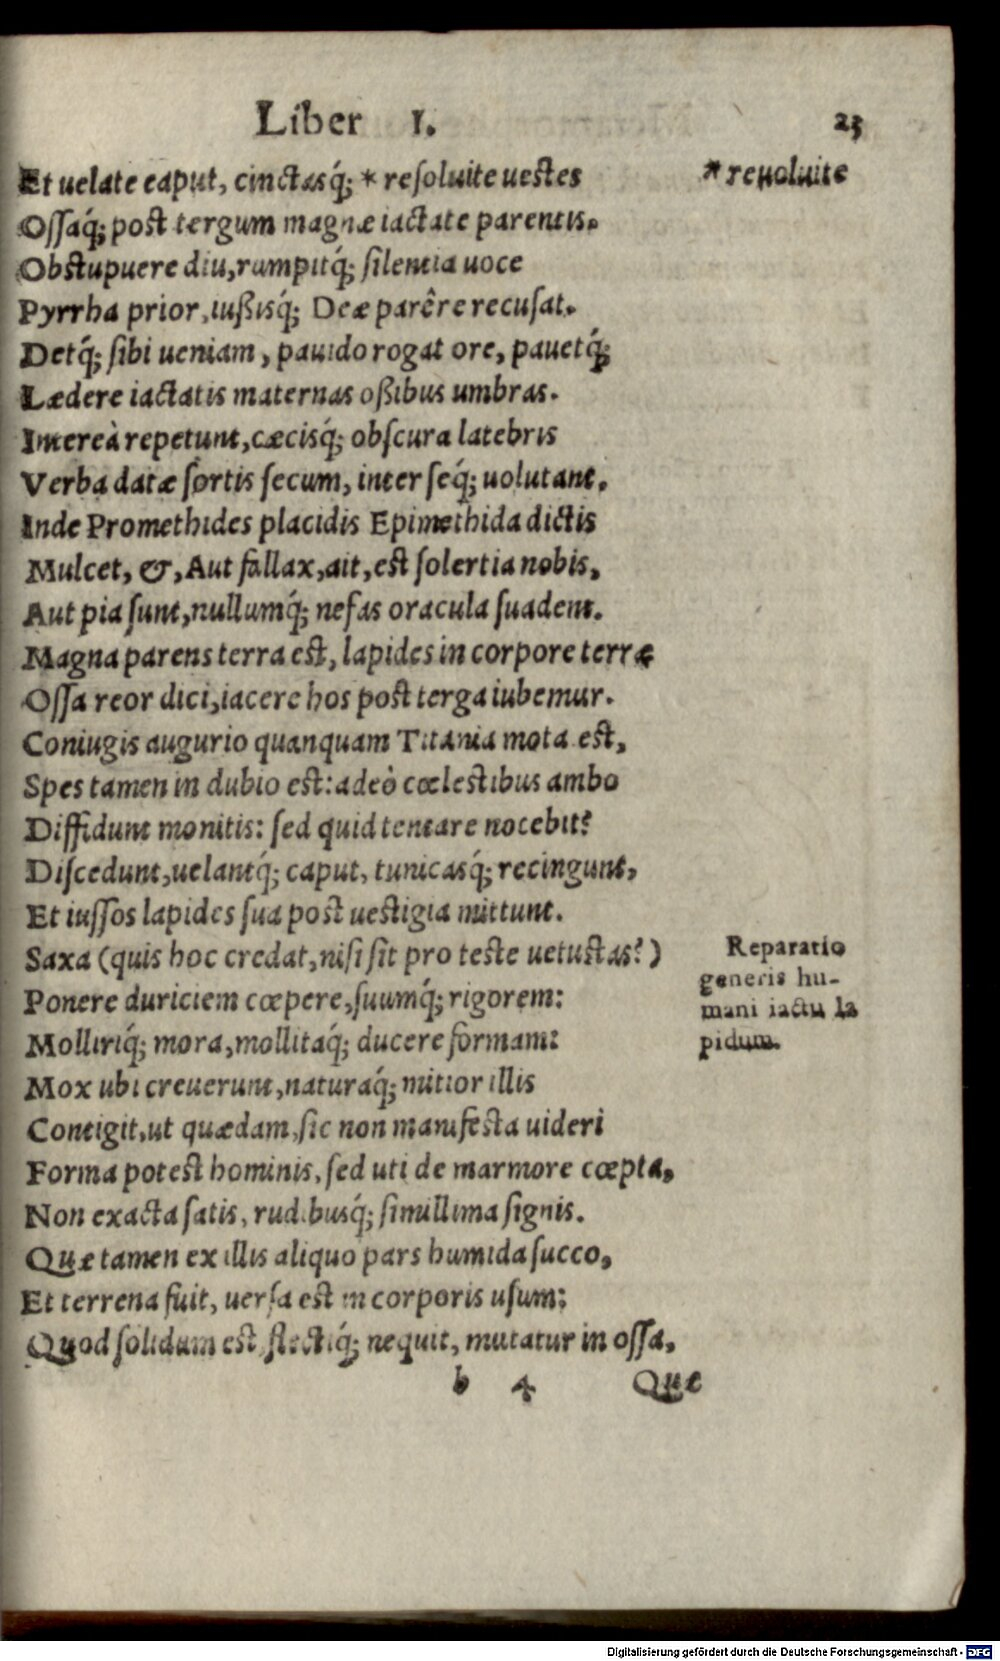 Liber I. 23
Et uelate caput, cinctasq́; * reſoluite ueſtes
* reuoluite
Oſſaq́; poſt tergum magnæ iactate parentis.
Obſtupuere diu, rumpitq́; ſilentia uoce
Pyrrha prior, iußisq́; Deæ parêre recuſat.
Detq́; ſibi ueniam, pauido rogat ore, pauetq́;
Lædere iactatis maternas oßibus umbras.
Intereà repetunt, cæcisq́; obſcura latebris
Verba datæ ſortis ſecum, inter ſeq́; uolutant.
Inde Promethides placidis Epimethida dictis
Mulcet, &, Aut fallax, ait, eſt ſolertia nobis,
Aut pia ſunt, nullumq́; nefas oracula ſuadent.
Magna parens terra eſt, lapides in corpore terræ
Oſſa reor dici, iacere hos poſt terga iubemur.
Coniugis augurio quanquam Titania mota eſt,
Spes tamen in dubio eſt: adeò cœleſtibus ambo
Diffidunt monitis: ſed quid tentare nocebit?
Diſcedunt, uelantq́; caput, tunicasq́; recingunt,
Et iuſſos lapides ſua poſt ueſtigia mittunt.
Saxa (quis hoc credat, niſi ſit pro teſte uetuſtas?)
Ponere duriciem cœpere, ſuumq́; rigorem:
Molliriq́; mora, mollitaq́; ducere formam:
Reparatio
generis hu-
mani iactu la
pidum.
Mox ubi creuerunt, naturaq́; mitior illis
Contigit, ut quædam, ſic non manifeſta uideri
Forma poteſt hominis, ſed uti de marmore cœpta,
Non exacta ſatis, rudibusq́; ſimillima ſignis.
Quæ tamen ex illis aliquo pars humida ſucco,
Et terrena fuit, uerſa eſt in corporis uſum:
Quod ſolidum eſt, flectiq́; nequit, mutatur in oſſa,
b 4 Quæ
Digitalisierung gefördert durch die Deutsche Forschungsgemeinschaft - DFG